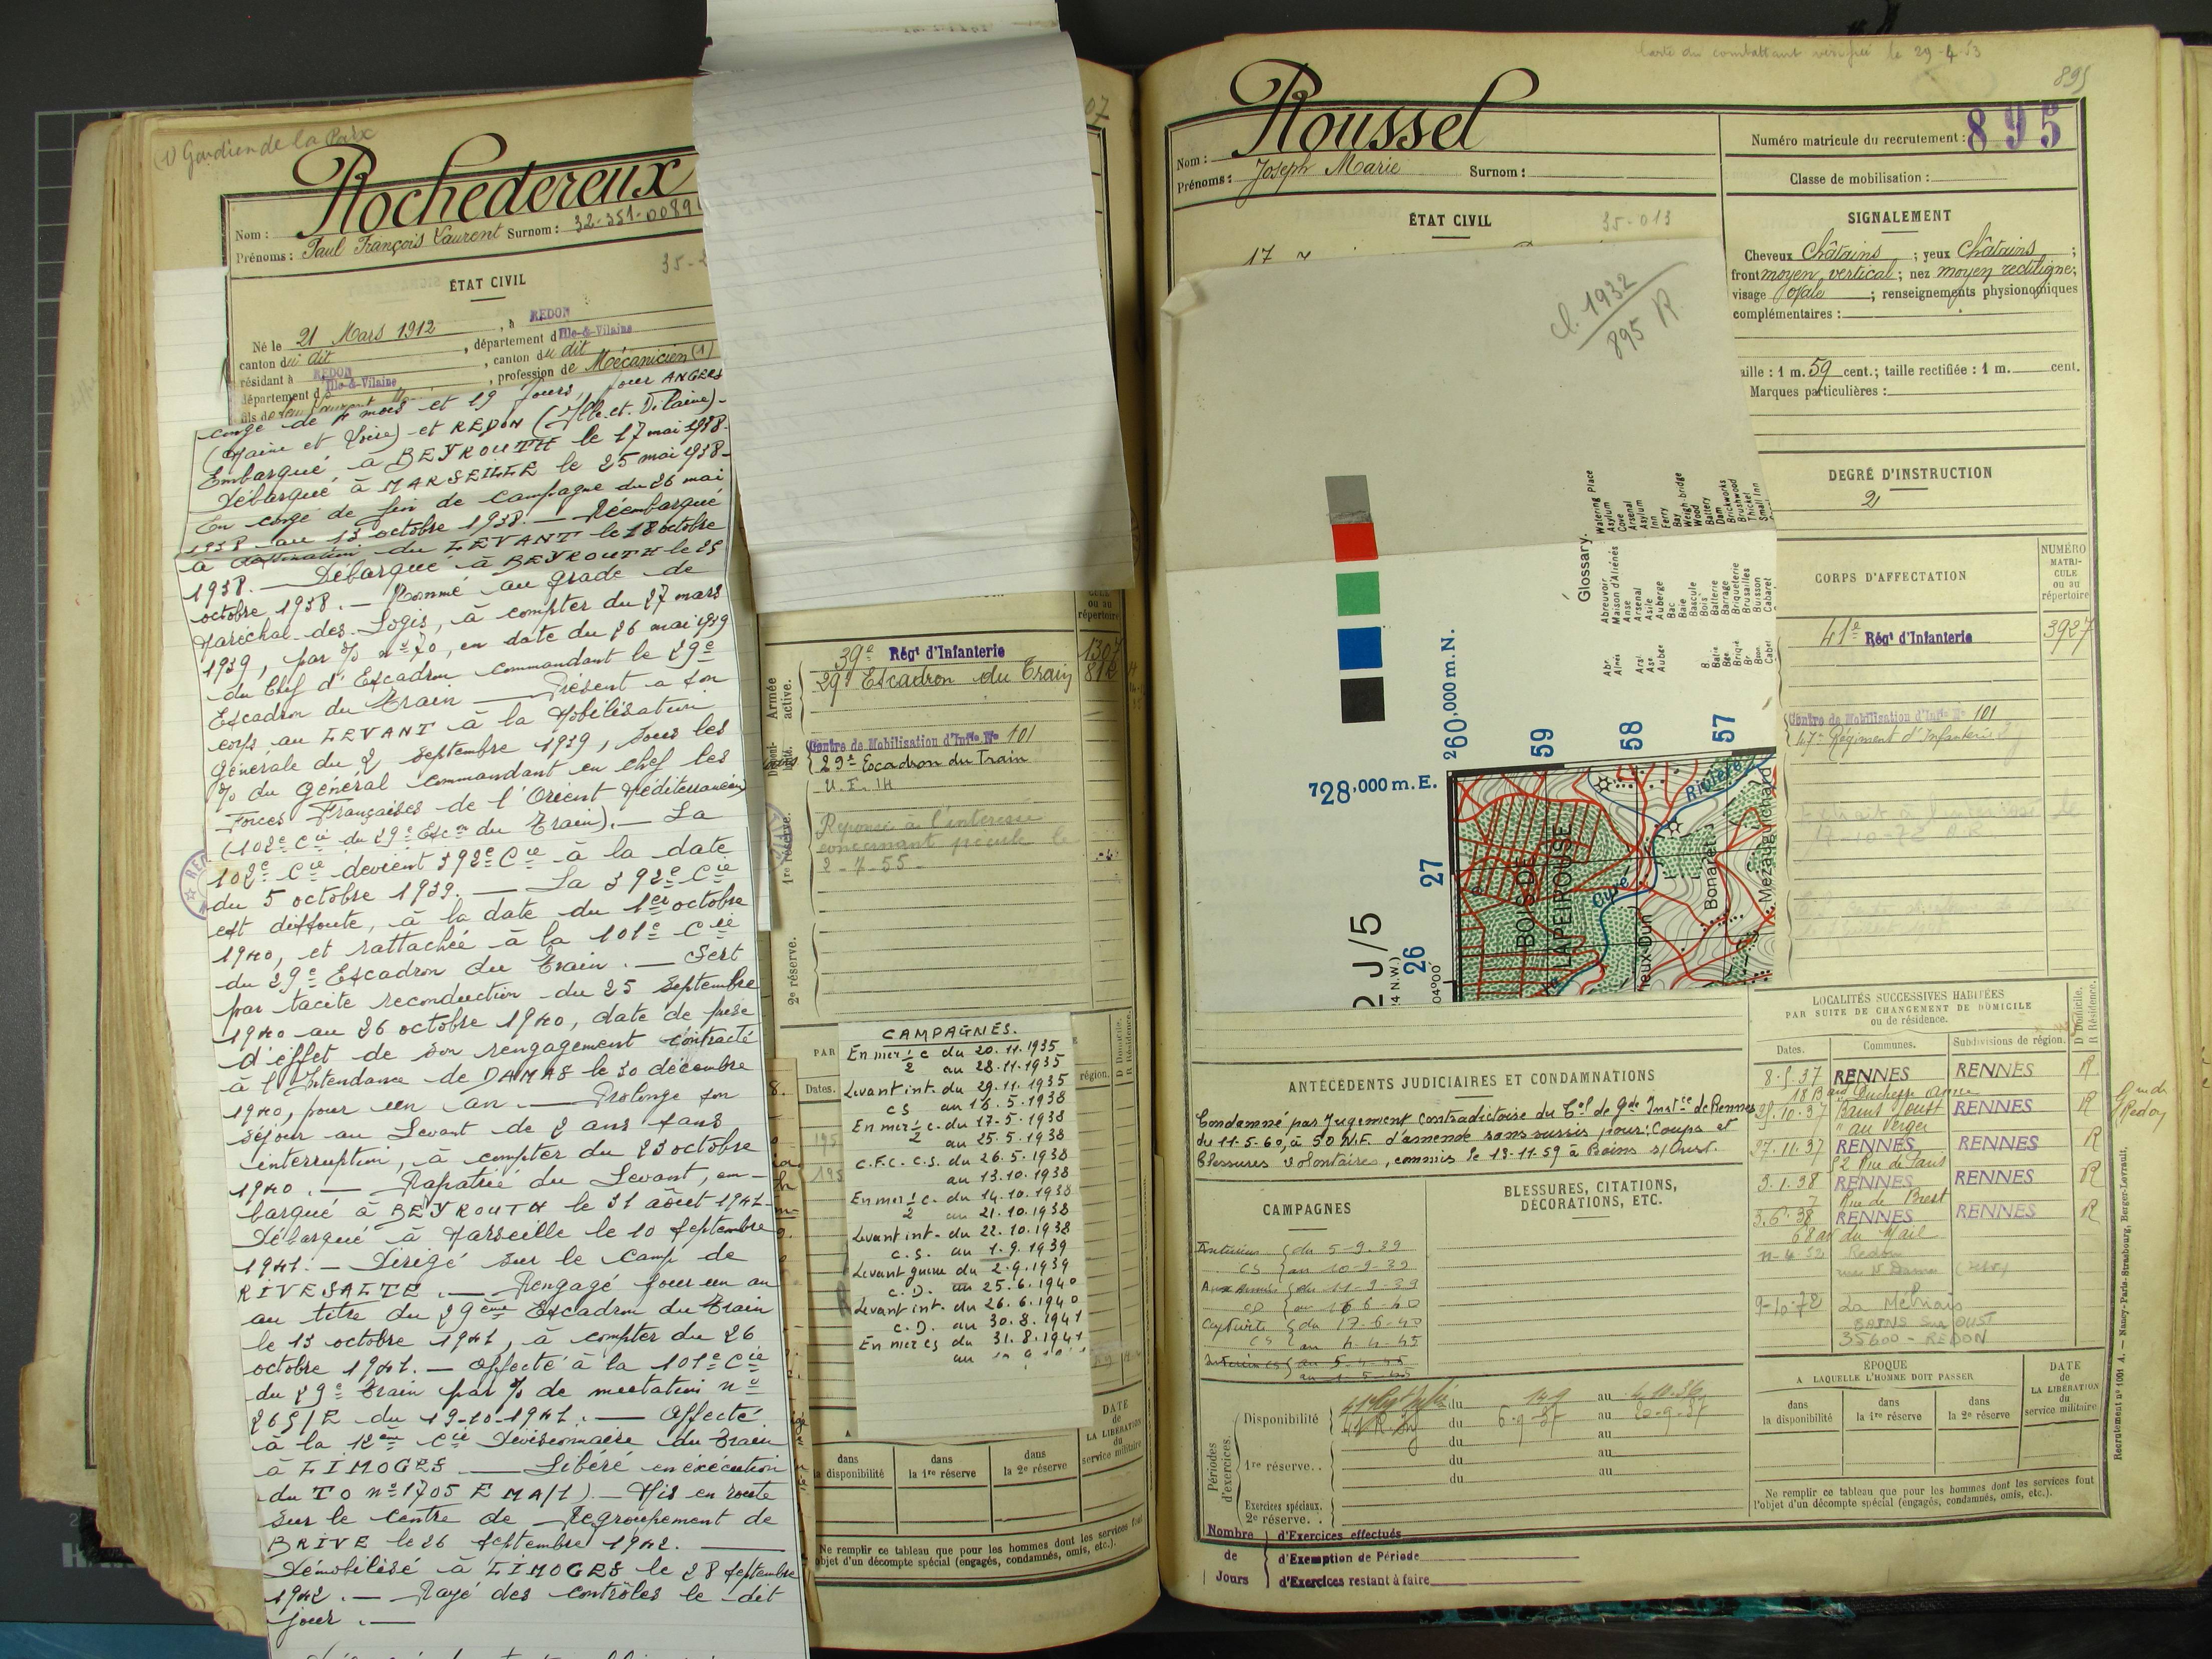 (1) Gardien de la Paix
Nom : Rochedereux
Prénoms : Paul François Laurent Surnom : 32-351-0089
ÉTAT CIVIL
Né le 21 Mars 1912, à REDON
canton du dit, département d'Ille-&-Vilaine
résidant à REDON, canton du dit
département d'Ille-&-Vilaine, profession de Mécanicien (1)
congé de 4 mois et 19 jours, pour ANGERS
(Maine et Loire) et REDON (Ille. et. Vilaine) -
Embarqué à BEYROUTH le 17 mai 1938.
Débarqué à MARSEILLE le 25 mai 1938 -
En congé de fin de campagne du 26 mai
1938 au 13 octobre 1938. — Réembarqué
à destination du LEVANT le 18 octobre
1938. — Débarqué à BEYROUTH le 25
octobre 1938. — Nommé au grade de
Maréchal-des-Logis, à compter du 27 mars
1939, par % n° 70, en date du 26 mai 1939
du Chef d'Escadron commandant le 29e
Escadron du Train — Présent a son
corps au LEVANT à la Mobilisation
générale du 2 septembre 1939, sous les
% du Général commandant en chef les
Forces Françaises de l'Orient Méditerranéen
(102e Cie du 29e Escon du Train). — La
102e Cie devient 392e Cie à la date
du 5 octobre 1939. — La 392e Cie
est dissoute, à la date du 1er octobre
1940, et rattachée à la 101e Cie
du 29e Escadron du Train. — Sert
par tacite reconduction du 25 septembre
1940 au 26 octobre 1940, date de prise
d'effet de son rengagement contracté
à l'Intendance de DAMAS le 30 décembre
1940, pour un an. — Prolonge son
séjour au Levant de 2 ans sans
interruption, à compter du 23 octobre
1940. — Rapatrié du Levant, em-
barqué à BEYROUTH le 31 août 1941-
Débarqué à Marseille le 10 septembre
1941. — Dirigé sur le Camp de
RIVESALTE. — Rengagé pour un an
au titre du 29ème Escadron du Train
le 13 octobre 1941, à compter du 26
octobre 1941. — Affecté à la 101e Cie
du 29e Train par % de mutation n°
265/E du 19-10-1941. — Affecté
à la 12eme Cie Divisionnaire du Train
à LIMOGES — Libéré en exécution
du TO n° 1705 EMA/1). — Mis en route
sur le centre de Regroupement de
BRIVE le 26 septembre 1942. —
Démobilisé à LIMOGES le 28 septembre
1942. — Rayé des contrôles le dit
jour. —
Armée active.
39e Régt d'Infanterie 1307
29e Escadron du Train 812
Centre de Mobilisation d'Infie No 101
29e Escadron du Train
1re réserve.
Réponse à l'intéressé
concernant pécule le
2-7-55-
2e réserve.
PAR
Dates.
région.
CAMPAGNES.
En mer ½ c du 20.11.1935
au 28.11.1935
Levant int. du 29.11.1935
CS au 16.5.1938
En mer ½ c. du 17-5-1938
au 25.5.1938
C.F.C. C.S. du 26.5.1938
au 13.10.1938
En mer ½ c. du 14.10.1938
au 21.10.1938
Levant int. du 22.10.1938
C.S. au 1.9.1939
Levant guerre du 2.9.1939
C.D. au 25.6.1940
Levant int. du 26.6.1940
C.D. au 30.8.1941
En mer CS du 31.8.1941
DATE de LA LIBÉRATION du service militaire
dans la disponibilité
dans la 1re réserve
dans la 2e réserve
Ne remplir ce tableau que pour les hommes dont les services font
objet d'un décompte spécial (engagés, condamnés, omis, etc.).
Carte du combattant vérifiée le 29-4-53
895
Nom : Roussel
Prénoms : Joseph Marie Surnom :
Numéro matricule du recrutement : 895
Classe de mobilisation :
ÉTAT CIVIL
35-013
SIGNALEMENT
Cheveux Châtains ; yeux Châtains ;
front moyen vertical ; nez moyen rectiligne ;
visage ovale ; renseignements physionomiques
complémentaires :
aille : 1 m. 59 cent.; taille rectifiée : 1 m. cent.
Marques particulières :
DEGRÉ D'INSTRUCTION
2
cl. 1932
895 R.
Glossary.
Abr. Abreuvoir Watering Place
Maison d'Aliénés Asylum
Anse Cove
Arsl. Arsenal Arsenal
Asile Asylum
Auberge Inn
Bac Ferry
Baie Bay
Bascule Weigh-bridge
B. Bois Wood
Batie Batterie Battery
Barrage Dam
Briqie Briqueterie Brickworks
Br. Brusailles Brushwood
Buisson Thicket
Cabet Cabaret Small Inn
260,000 m. N.
59
58
57
728,000 m. E.
27
26
2 J/5
04°00'
BOIS DE LAPEIROUSE
Rivière
Bonaret
CORPS D'AFFECTATION
NUMÉRO MATRI- CULE ou au répertoire
41e Régt d'Infanterie 3927
Centre de Mobilisation d'Infie No 101
47e Régiment d'Infanterie
17-10-72
ANTÉCÉDENTS JUDICIAIRES ET CONDAMNATIONS
Condamné par Jugement contradictoire du Tel de Gde Instce de Rennes
du 11-5-60, à 50 N.F. d'amende sans sursis pour: Coups et
blessures volontaires, commis le 13-11-59 à Bains s/Oust.
CAMPAGNES
BLESSURES, CITATIONS, DÉCORATIONS, ETC.
Intérieur du 5-9-39
CS au 10-9-39
Aux Armées du 11-9-39
CD au 16-6-40
Captivité du 17-6-40
CS au 4-4-45
Intérieur CS au 5-4-45
LOCALITÉS SUCCESSIVES HABITÉES
PAR SUITE DE CHANGEMENT DE DOMICILE
ou de résidence.
Dates. Communes. Subdivisions de région. D Domicile. R Résidence.
8-5-37 RENNES RENNES R
18 Bard Duchesse Anne
25.10.37 Bains s/Oust RENNES R
au Verger
27.11.37 RENNES RENNES R
52 Rue de Paris
3.1.38 RENNES RENNES R
7 Rue de Brest
3.6.38 RENNES RENNES R
68 du Mail
Redon
9-10-72 La Métrais
BAINS sur OUST
35600 - REDON
Périodes d'exercices.
Disponibilité du 14-9 au 4.10.36
du 6-9-37 au 20-9-37
du au
1re réserve. . du au
du au
Exercices spéciaux.
2e réserve. .
ÉPOQUE
A LAQUELLE L'HOMME DOIT PASSER
dans la disponibilité
dans la 1re réserve
dans la 2e réserve
DATE de LA LIBÉRATION du service militaire
Ne remplir ce tableau que pour les hommes dont les services font
l'objet d'un décompte spécial (engagés, condamnés, omis, etc.).
Nombre d'Exercices effectués
de d'Exemption de Période
Jours d'Exercices restant à faire
Recrutement n° 1001 A. — Nancy-Paris-Strasbourg, Berger-Levrault.